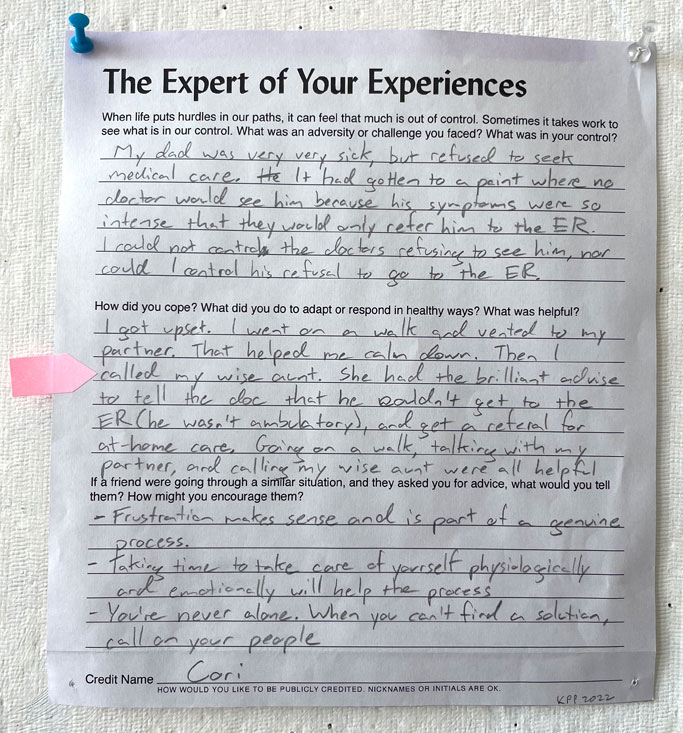 The Expert of Your Experiences
When life puts hurdles in our paths, it can feel that much is out of control. Sometimes it takes work to
see what is in our control. What was an adversity or challenge you faced? What was in your control?
My dad was very very sick, but refused to seek
medical care. He It had gotten to a point where no
doctor would see him because his symptoms were so
intense that they would only refer him to the ER.
I could not control the doctors refusing to see him, nor
could I control his refusal to go to the ER.
How did you cope? What did you do to adapt or respond in healthy ways? What was helpful?
I got upset. I went on a walk and vented to my
partner. That helped me calm down. Then I
called my wise aunt. She had the brilliant advise
to tell the doc that he couldn't get to the
ER (he wasn't ambulatory), and get a referal for
at-home care. Going on a walk, talking with my
partner, and calling my wise aunt were all helpful
If a friend were going through a similar situation, and they asked you for advice, what would you tell
them? How might you encourage them?
- Frustration makes sense and is part of a genuine
process.
- Taking time to take care of yourself physiologically
and emotionally will help the process
- You're never alone. When you can't find a solution,
call on your people
Credit Name Cori
HOW WOULD YOU LIKE TO BE PUBLICLY CREDITED. NICKNAMES OR INITIALS ARE OK.
KPP 2022